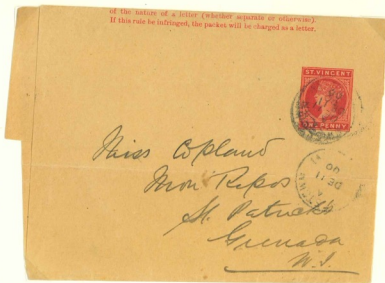 of the nature of a letter (whether separate or otherwise).
If this rule be infringed, the packet will be charged as a letter.
ST. VINCENT
PENNY
Miss Copland
Mon Repos
St. Patrick's
Grenada
W.I.
A
DE 11
00